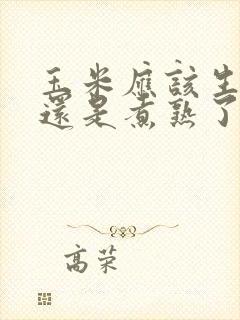 玉米應該生
還是煮熟了
高荣